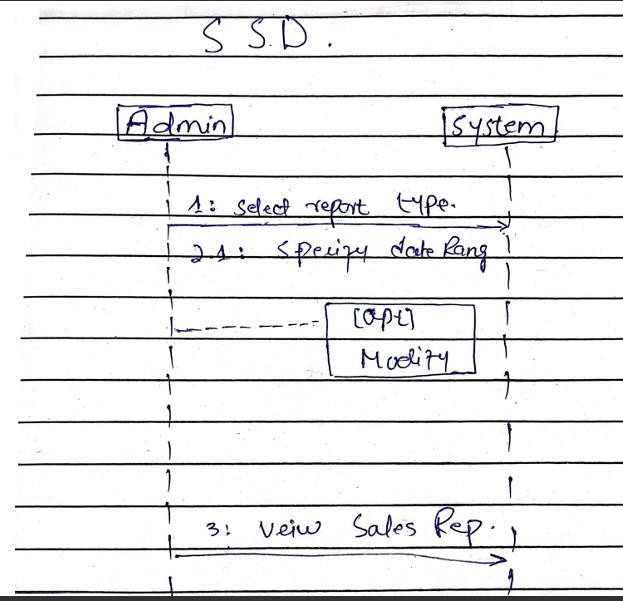 S S.D.
Admin
System
1: select report type.
2.1: Specify date Rang
[opt]
Modify
3: veiw Sales Rep.